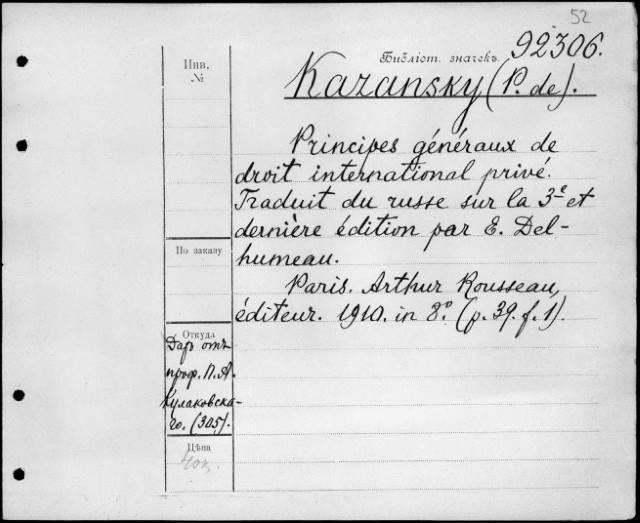 52
Инв.
№
Библіот. значекъ 92306.
Kazansky (P. de).
Principes généraux de
droit international privé.
Traduit du russe sur la 3e et
dernière édition par E. Del-
humeau.
Paris. Arthur Rousseau,
éditeur. 1910. in 8°. (p. 39. f. 1).
По заказу
Откуда
Даръ отъ
проф. П. А.
Кулаковска-
го. (305).
Цѣна